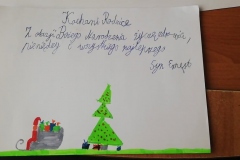 Kochani Rodzice
Z okazji Bożego Narodzenia życzę zdrowia,
pieniędzy i wszystkiego najlepszego
Syn Ernest